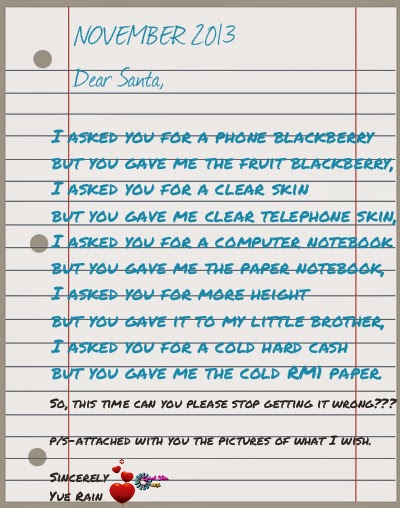 NOVEMBER 2013
Dear Santa,
I ASKED YOU FOR A PHONE BLACKBERRY
BUT YOU GAVE ME THE FRUIT BLACKBERRY,
I ASKED YOU FOR A CLEAR SKIN
BUT YOU GAVE ME CLEAR TELEPHONE SKIN,
I ASKED YOU FOR A COMPUTER NOTEBOOK
BUT YOU GAVE ME THE PAPER NOTEBOOK,
I ASKED YOU FOR MORE HEIGHT
BUT YOU GAVE IT TO MY LITTLE BROTHER,
I ASKED YOU FOR A COLD HARD CASH
BUT YOU GAVE ME THE COLD RM1 PAPER.
SO, THIS TIME CAN YOU PLEASE STOP GETTING IT WRONG???
P/S-ATTACHED WITH YOU THE PICTURES OF WHAT I WISH.
SINCERELY
YUE RAIN